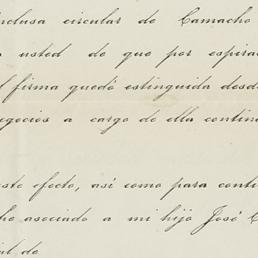 nclusa circular de Camacho
usted de que por espira
firma quedó estinguida desd
egocios a cargo de ella contin
ste efecto, así como para conti
ho asociado a mi hijo José C
de